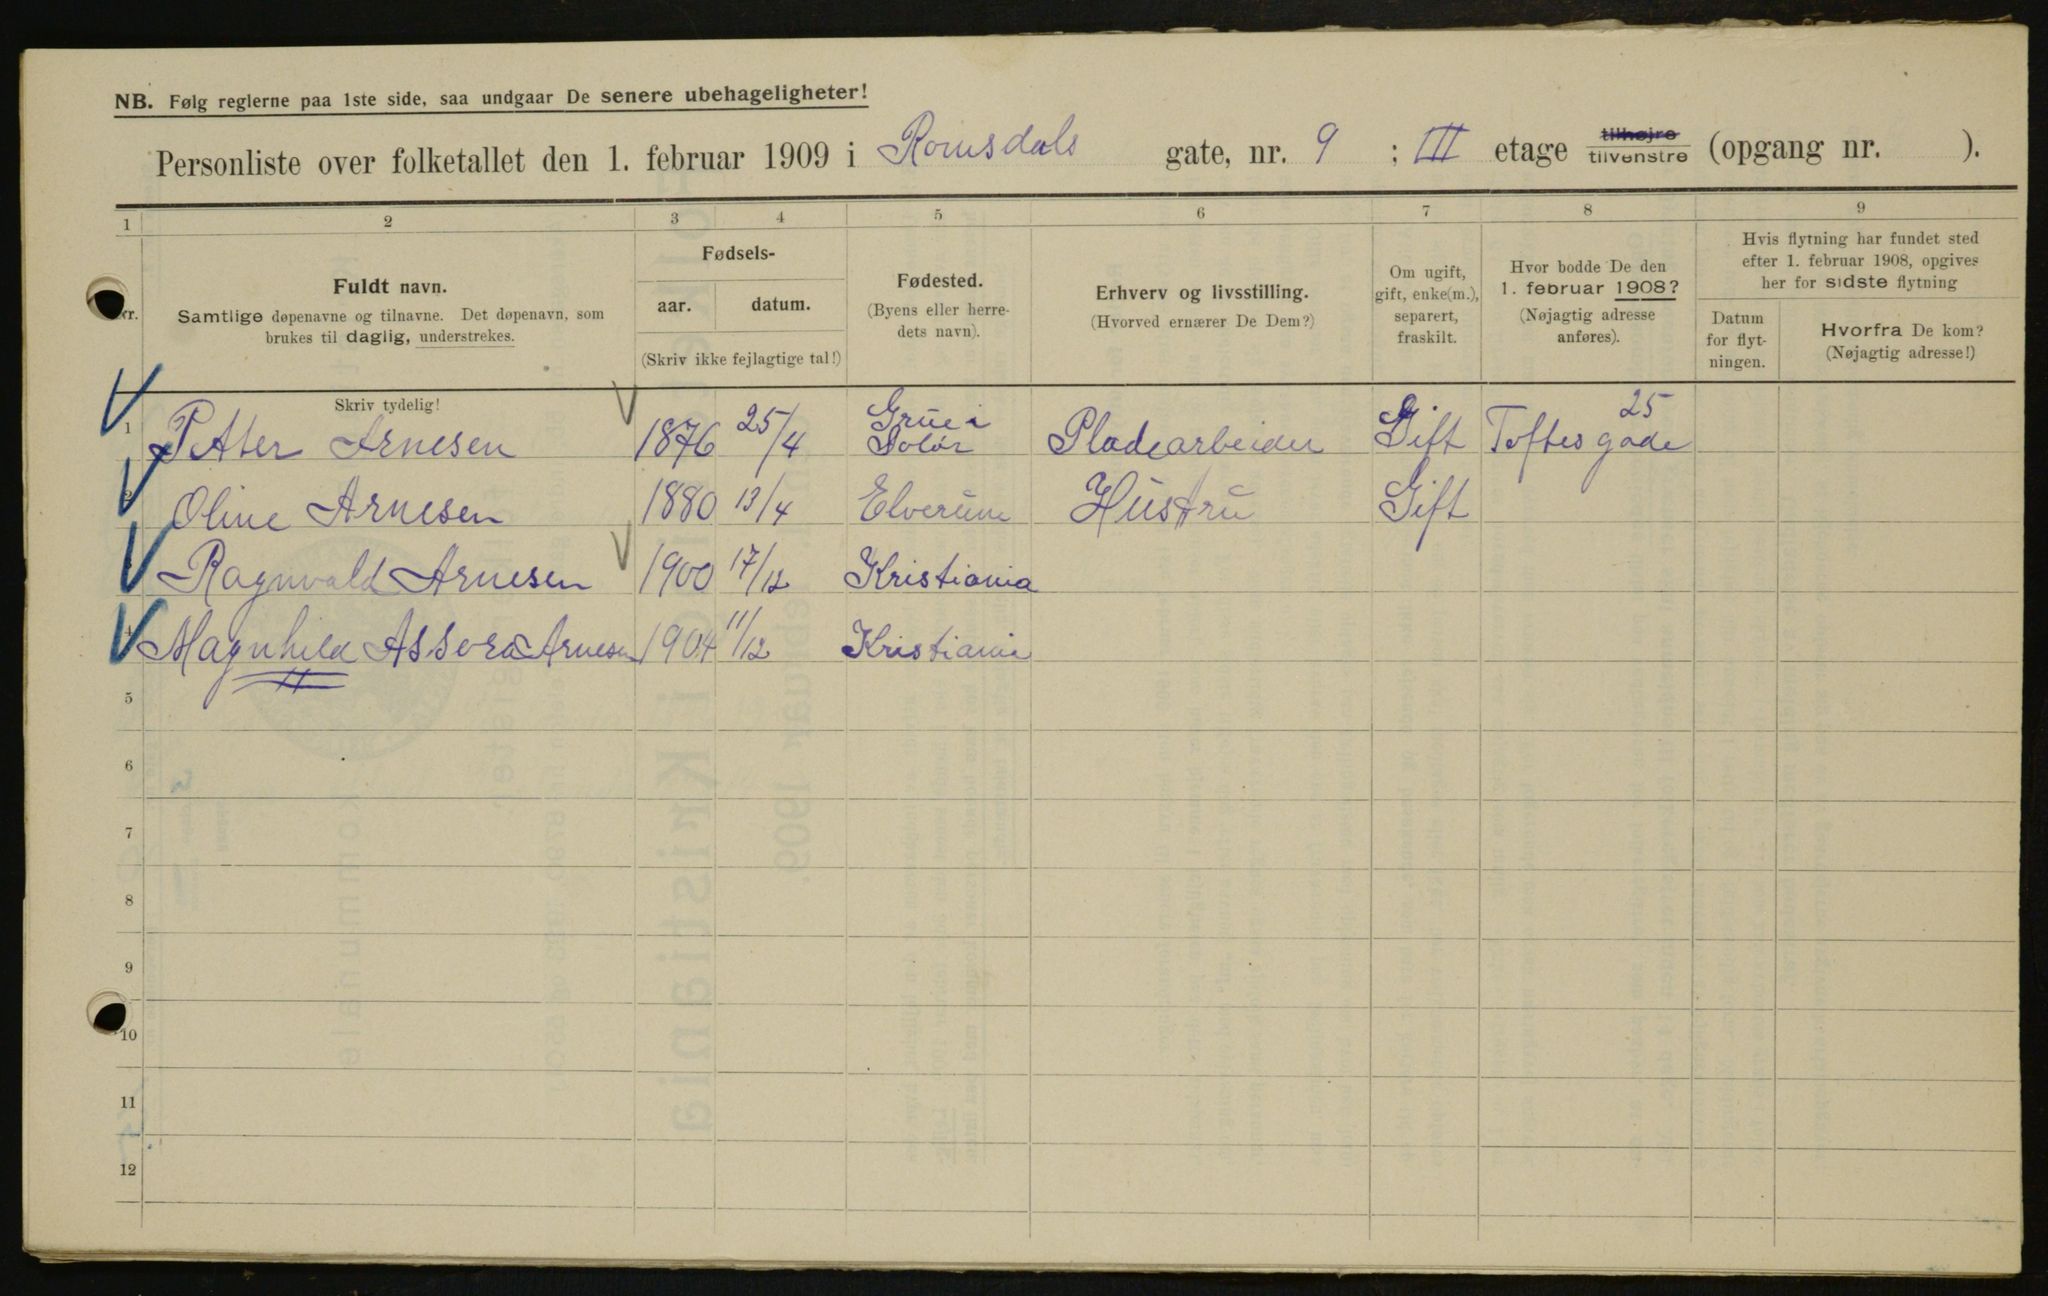 NB. Følg reglerne paa 1ste side, saa undgaar De senere ubehageligheter!
Personliste over folketallet den 1. februar 1909 i Romsdals gate, nr. 9 ; III etage tilhøjre tilvenstre (opgang nr. ).
1 2 3 4 5 6 7 8 9
Nr.
Fuldt navn.
Samtlige døpenavne og tilnavne. Det døpenavn, som
brukes til daglig, understrekes.
Fødsels-
aar. datum.
(Skriv ikke fejlagtige tal!)
Fødested.
(Byens eller herre-
dets navn).
Erhverv og livsstilling.
(Hvorved ernærer De Dem?)
Om ugift,
gift, enke(m.),
separert,
fraskilt.
Hvor bodde De den
1. februar 1908?
(Nøjagtig adresse
anføres).
Hvis flytning har fundet sted
efter 1. februar 1908, opgives
her for sidste flytning
Datum
for flyt-
ningen.
Hvorfra De kom?
(Nøjagtig adresse!)
Skriv tydelig!
1 Petter Arnesen 1876 25/4 Grue i Solør Pladearbeider Gift Toftes gade 25
2 Oline Arnesen 1880 13/4 Elverum Hustru Gift
Ragnvald Arnesen 1900 17/12 Kristiania
4 Magnhild Assora Arnesen 1904 11/12 Kristiania
5
6
7
8
9
10
11
12